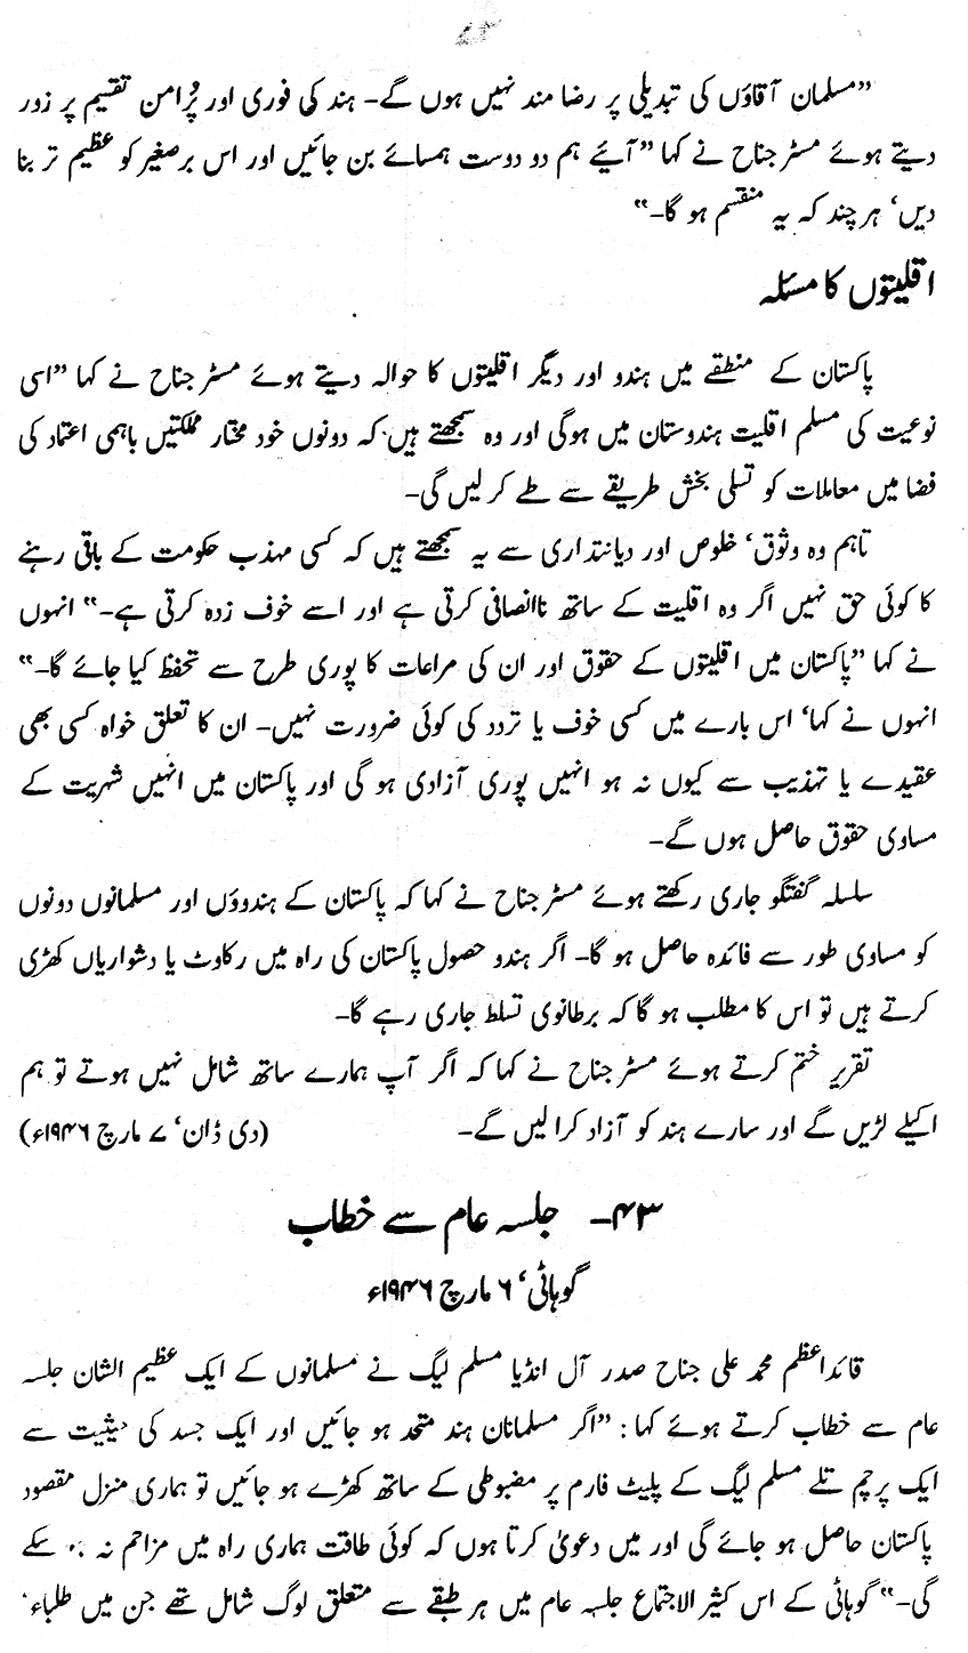 ”مسلمان آقاؤں کی تبدیلی پر رضا مند نہیں ہوں گے۔ ہند کی فوری اور پُرامن تقسیم پر زور
دیتے ہوئے مسٹر جناح نے کہا ”آیئے ہم دو دوست ہمسائے بن جائیں اور اس برصغیر کو عظیم تر بنا
دیں‘ ہر چند کہ یہ منقسم ہو گا۔“
اقلیتوں کا مسئلہ
پاکستان کے منطقے میں ہندو اور دیگر اقلیتوں کا حوالہ دیتے ہوئے مسٹر جناح نے کہا ”اسی
نوعیت کی مسلم اقلیت ہندوستان میں ہوگی اور وہ سمجھتے ہیں کہ دونوں خود مختار مملکتیں باہمی اعتماد کی
فضا میں معاملات کو تسلی بخش طریقے سے طے کر لیں گی۔
تاہم وہ وثوق‘ خلوص اور دیانتداری سے یہ سمجھتے ہیں کہ کسی مہذب حکومت کے باقی رہنے
کا کوئی حق نہیں اگر وہ اقلیت کے ساتھ ناانصافی کرتی ہے اور اسے خوف زدہ کرتی ہے۔“ انہوں
نے کہا ”پاکستان میں اقلیتوں کے حقوق اور ان کی مراعات کا پوری طرح سے تحفظ کیا جائے گا۔“
انہوں نے کہا‘ اس بارے میں کسی خوف یا تردد کی کوئی ضرورت نہیں۔ ان کا تعلق خواہ کسی بھی
عقیدے یا تہذیب سے کیوں نہ ہو انہیں پوری آزادی ہو گی اور پاکستان میں انہیں شہریت کے
مساوی حقوق حاصل ہوں گے۔
سلسلہ گفتگو جاری رکھتے ہوئے مسٹر جناح نے کہا کہ پاکستان کے ہندوؤں اور مسلمانوں دونوں
کو مساوی طور سے فائدہ حاصل ہو گا۔ اگر ہندو حصول پاکستان کی راہ میں رکاوٹ یا دشواریاں کھڑی
کرتے ہیں تو اس کا مطلب ہو گا کہ برطانوی تسلط جاری رہے گا۔
تقریر ختم کرتے ہوئے مسٹر جناح نے کہا کہ اگر آپ ہمارے ساتھ شامل نہیں ہوتے تو ہم
اکیلے لڑیں گے اور سارے ہند کو آزاد کرا لیں گے۔ (دی ڈان‘ ۷ مارچ ۱۹۴۶ء)
۴۳۔ جلسہ عام سے خطاب
گوہاٹی‘ ۶ مارچ ۱۹۴۶ء
قائداعظم محمد علی جناح صدر آل انڈیا مسلم لیگ نے مسلمانوں کے ایک عظیم الشان جلسہ
عام سے خطاب کرتے ہوئے کہا: ”اگر مسلمانان ہند متحد ہو جائیں اور ایک جسد کی حیثیت سے
ایک پرچم تلے مسلم لیگ کے پلیٹ فارم پر مضبوطی کے ساتھ کھڑے ہو جائیں تو ہماری منزل مقصود
پاکستان حاصل ہو جائے گی اور میں دعویٰ کرتا ہوں کہ کوئی طاقت ہماری راہ میں مزاحم نہ سکے
گی۔“ گوہاٹی کے اس کثیر الاجتماع جلسہ عام میں ہر طبقے سے متعلق لوگ شامل تھے جن میں طلباء‘